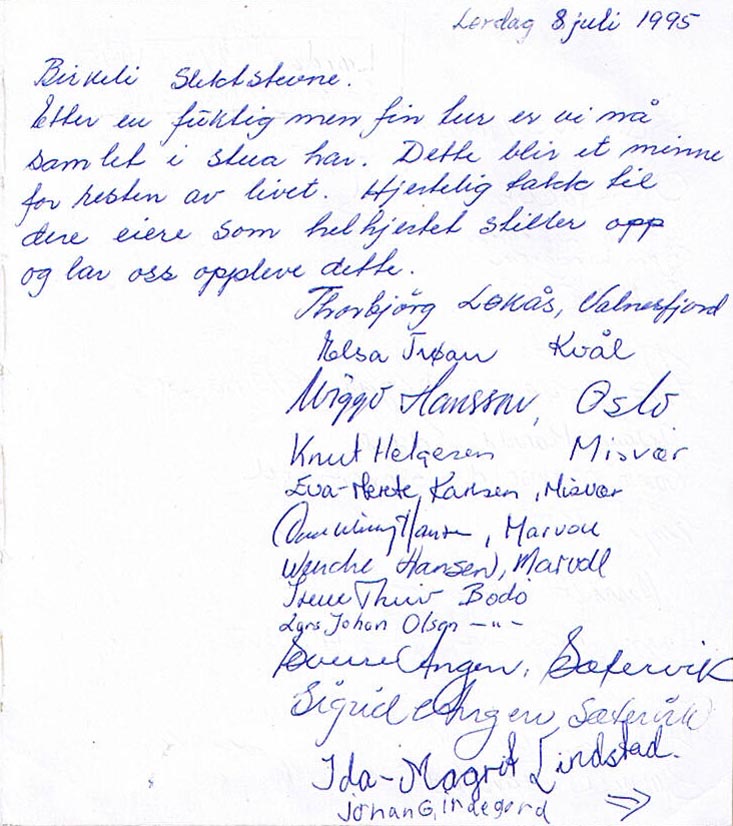 Lørdag 8 juli 1995
Birkeli Slektstevne.
Etter en fuktig men fin tur er vi nå
samlet i stua har. Dette blir et minne
for resten av livet. Hjertelig takk til
dere eiere som helhjertet stiller opp
og lar oss oppleve dette.
Thorbjörg Løkås, Valnesfjord
Kvål
Wiggo Hanssen, Oslo
Knut Helgesen Misvær
Eva-Merete Karlsen, Misvær
Hansen, Marvoll
Wenche Hansen, Marvoll
Irene Bodø
Lars Johan Olsen -"-
Sverre Angen, Sætervik
Sigrid Angen Sætervik
Ida-Magrit Lindstad.
Johan G. Lindegård